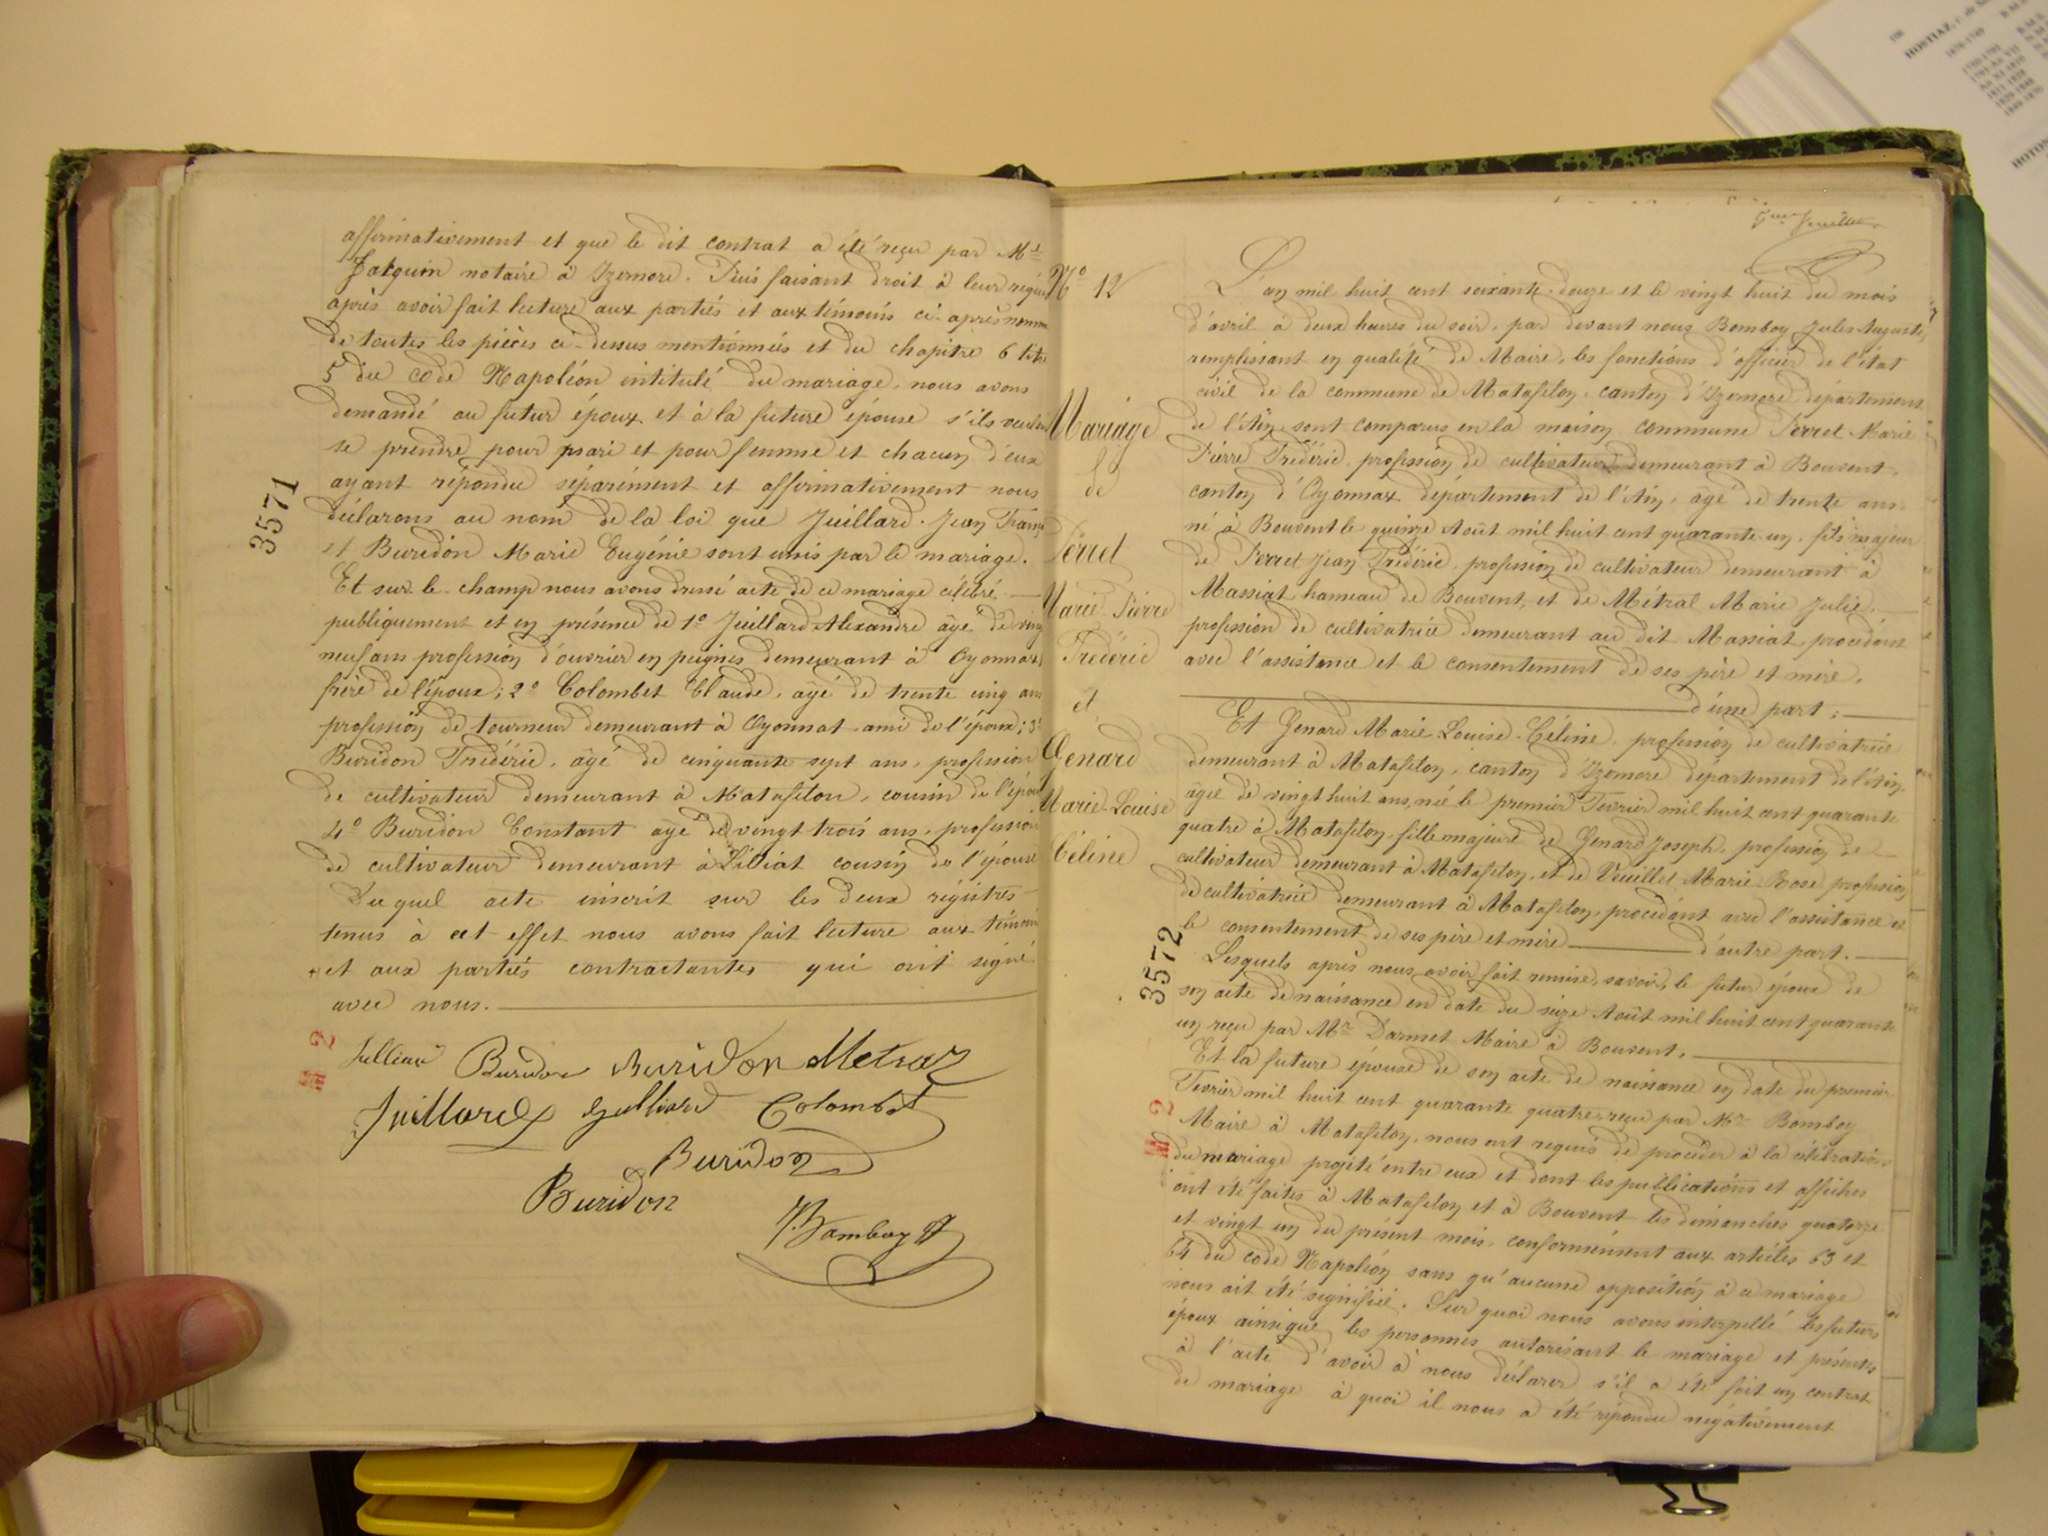 affirmativement et que le dit contrat a été reçu par Me
Jalquin notaire à Izernore. Puis faisant droit à leur réquis
après avoir fait lecture aux parties et aux témoins ci-après nommé
de toutes les pièces ci-dessus mentionnées et du chapitre 6 titre
5 du code Napoléon intitulé du mariage, nous avons
demandé au futur époux et à la future épouse s'ils veulent
se prendre pour mari et pour femme et chacun d'eux
ayant répondu séparément et affirmativement nous
déclarons au nom de la loi que Juillard Jean Franç
et Buridon Marie Eugénie sont unis par le mariage.
Et sur le champ nous avons dressé acte de ce mariage célébré
publiquement et en présence de 1° Juillard Alexandre âgé de vingt
neuf ans profession d'ouvrier en peignes demeurant à Oyonnax
frère de l'époux; 2° Colombet Claude, âgé de trente cinq ans
profession de tourneur demeurant à Oyonnat ami de l'époux; 3°
Buridon Frédéric, âgé de cinquante sept ans, profession
de cultivateur demeurant à Matafelon, cousin de l'épou
4° Buridon Constant âgé de vingt trois ans, profession
de cultivateur demeurant à cousin de l'épouse
Duquel acte inscrit sur les deux régistres
tenus à cet effet nous avons fait lecture aux témoins
et aux parties contractantes qui ont signé
avec nous.
Buridon Buridon Metraz
Juillard Juilliard Colombet
Buridon
Buridon
Bomboy Jt
3571
2
feuillet
N° 12
Mariage
de
Perret
Marie Pierre
Frédéric
et
Genard
Marie-Louise
Céline
3572
2
L'an mil huit cent soixante-douze et le vingt huit du mois
d'avril à deux heures du soir, par devant nous Bomboy Jules Auguste,
remplissant en qualité de Maire, les fonctions d'officier de l'état
civil de la commune de Matafelon, canton d'Izernore département
de l'Ain sont comparus en la maison commune Perret Marie
Pierre Frédéric, profession de cultivateur demeurant à Bouvent,
canton d'Oyonnax département de l'Ain, âgé de trente ans
né à Bouvent le quinze Août mil huit cent quarante un, fils majeur
de Perret Jean Frédéric, profession de cultivateur demeurant à
Massiat hameau de Bouvent, et de Métral Marie Julie,
profession de cultivatrice demeurant au dit Massiat, procédant
avec l'assistance et le consentement de ses père et mère,
d'une part;
Et Genard Marie-Louise-Céline, profession de cultivatrice
demeurant à Matafelon, canton d'Izernore département de l'Ain,
âgée de vingt huit ans, née le premier Février mil huit cent quarante
quatre à Matafelon, fille majeure de Genard Joseph, profession de
cultivateur demeurant à Matafelon, et de Vuillet Marie-Rose profession
de cultivatrice demeurant à Matafelon, procédant avec l'assistance et
le consentement de ses père et mère d'autre part.
Lesquels après nous avoir fait remise, savoir, le futur époux de
son acte de naissance en date du seize Août mil huit cent quarante
un reçu par Mr Darmet Maire à Bouvent,
Et la future épouse de son acte de naissance en date du premier
Février mil huit cent quarante quatre, reçu par Mr Bomboy
Maire à Matafelon, nous ont requis de procéder à la célébration
du mariage projeté entre eux et dont les publications et affiches
ont été faites à Matafelon et à Bouvent les dimanches quatorze
et vingt un du présent mois, conformément aux articles 63 et
64 du code Napoléon sans qu'aucune opposition à ce mariage
nous ait été signifiée. Sur quoi nous avons interpellé les futurs
époux ainsi que les personnes autorisant le mariage et présentes
à l'acte d'avoir à nous déclarer s'il a été fait un contrat
de mariage à quoi il nous a été répondu négativement